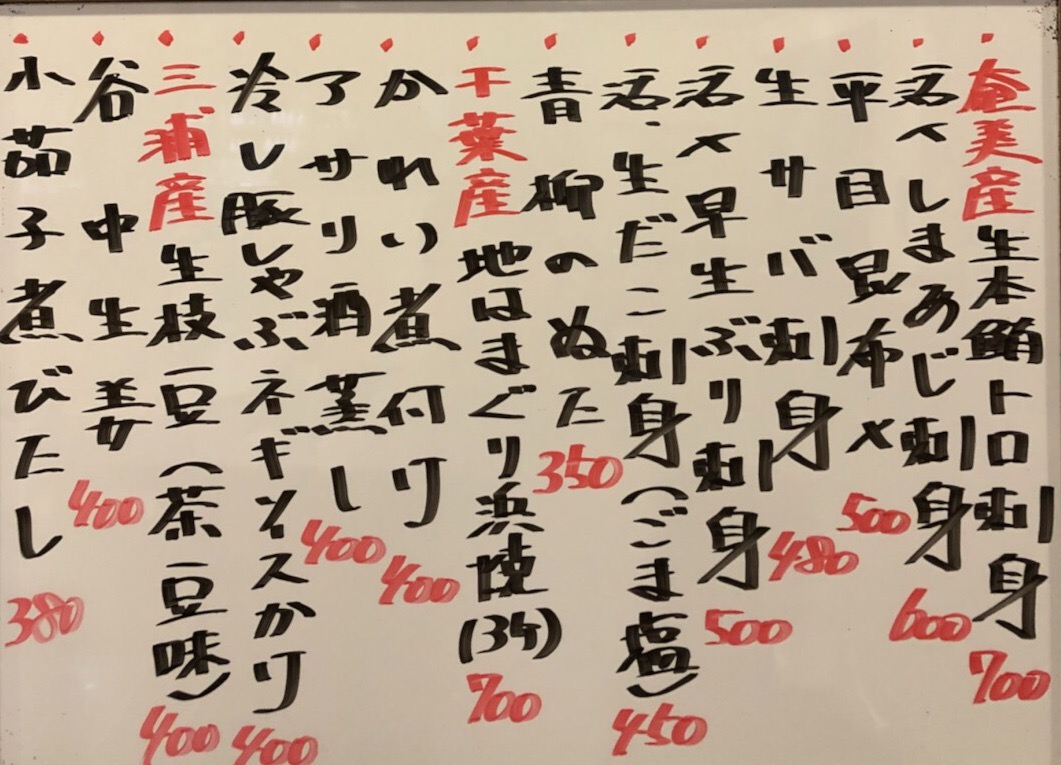 奄美産生本鮪トロ刺身 700
活〆しまあじ刺身 600
平目昆布〆 500
生サバ刺身 480
活〆早生ぶり刺身 500
活・生だこ刺身(ごま塩) 450
青柳のぬた 350
千葉産地はまぐり浜焼(3ヶ) 700
かれい煮付け 400
アサリ酒蒸し 400
冷し豚しゃぶネギソースがけ 400
三浦産生枝豆(茶豆味) 400
谷中生姜 400
小茄子煮びたし 380